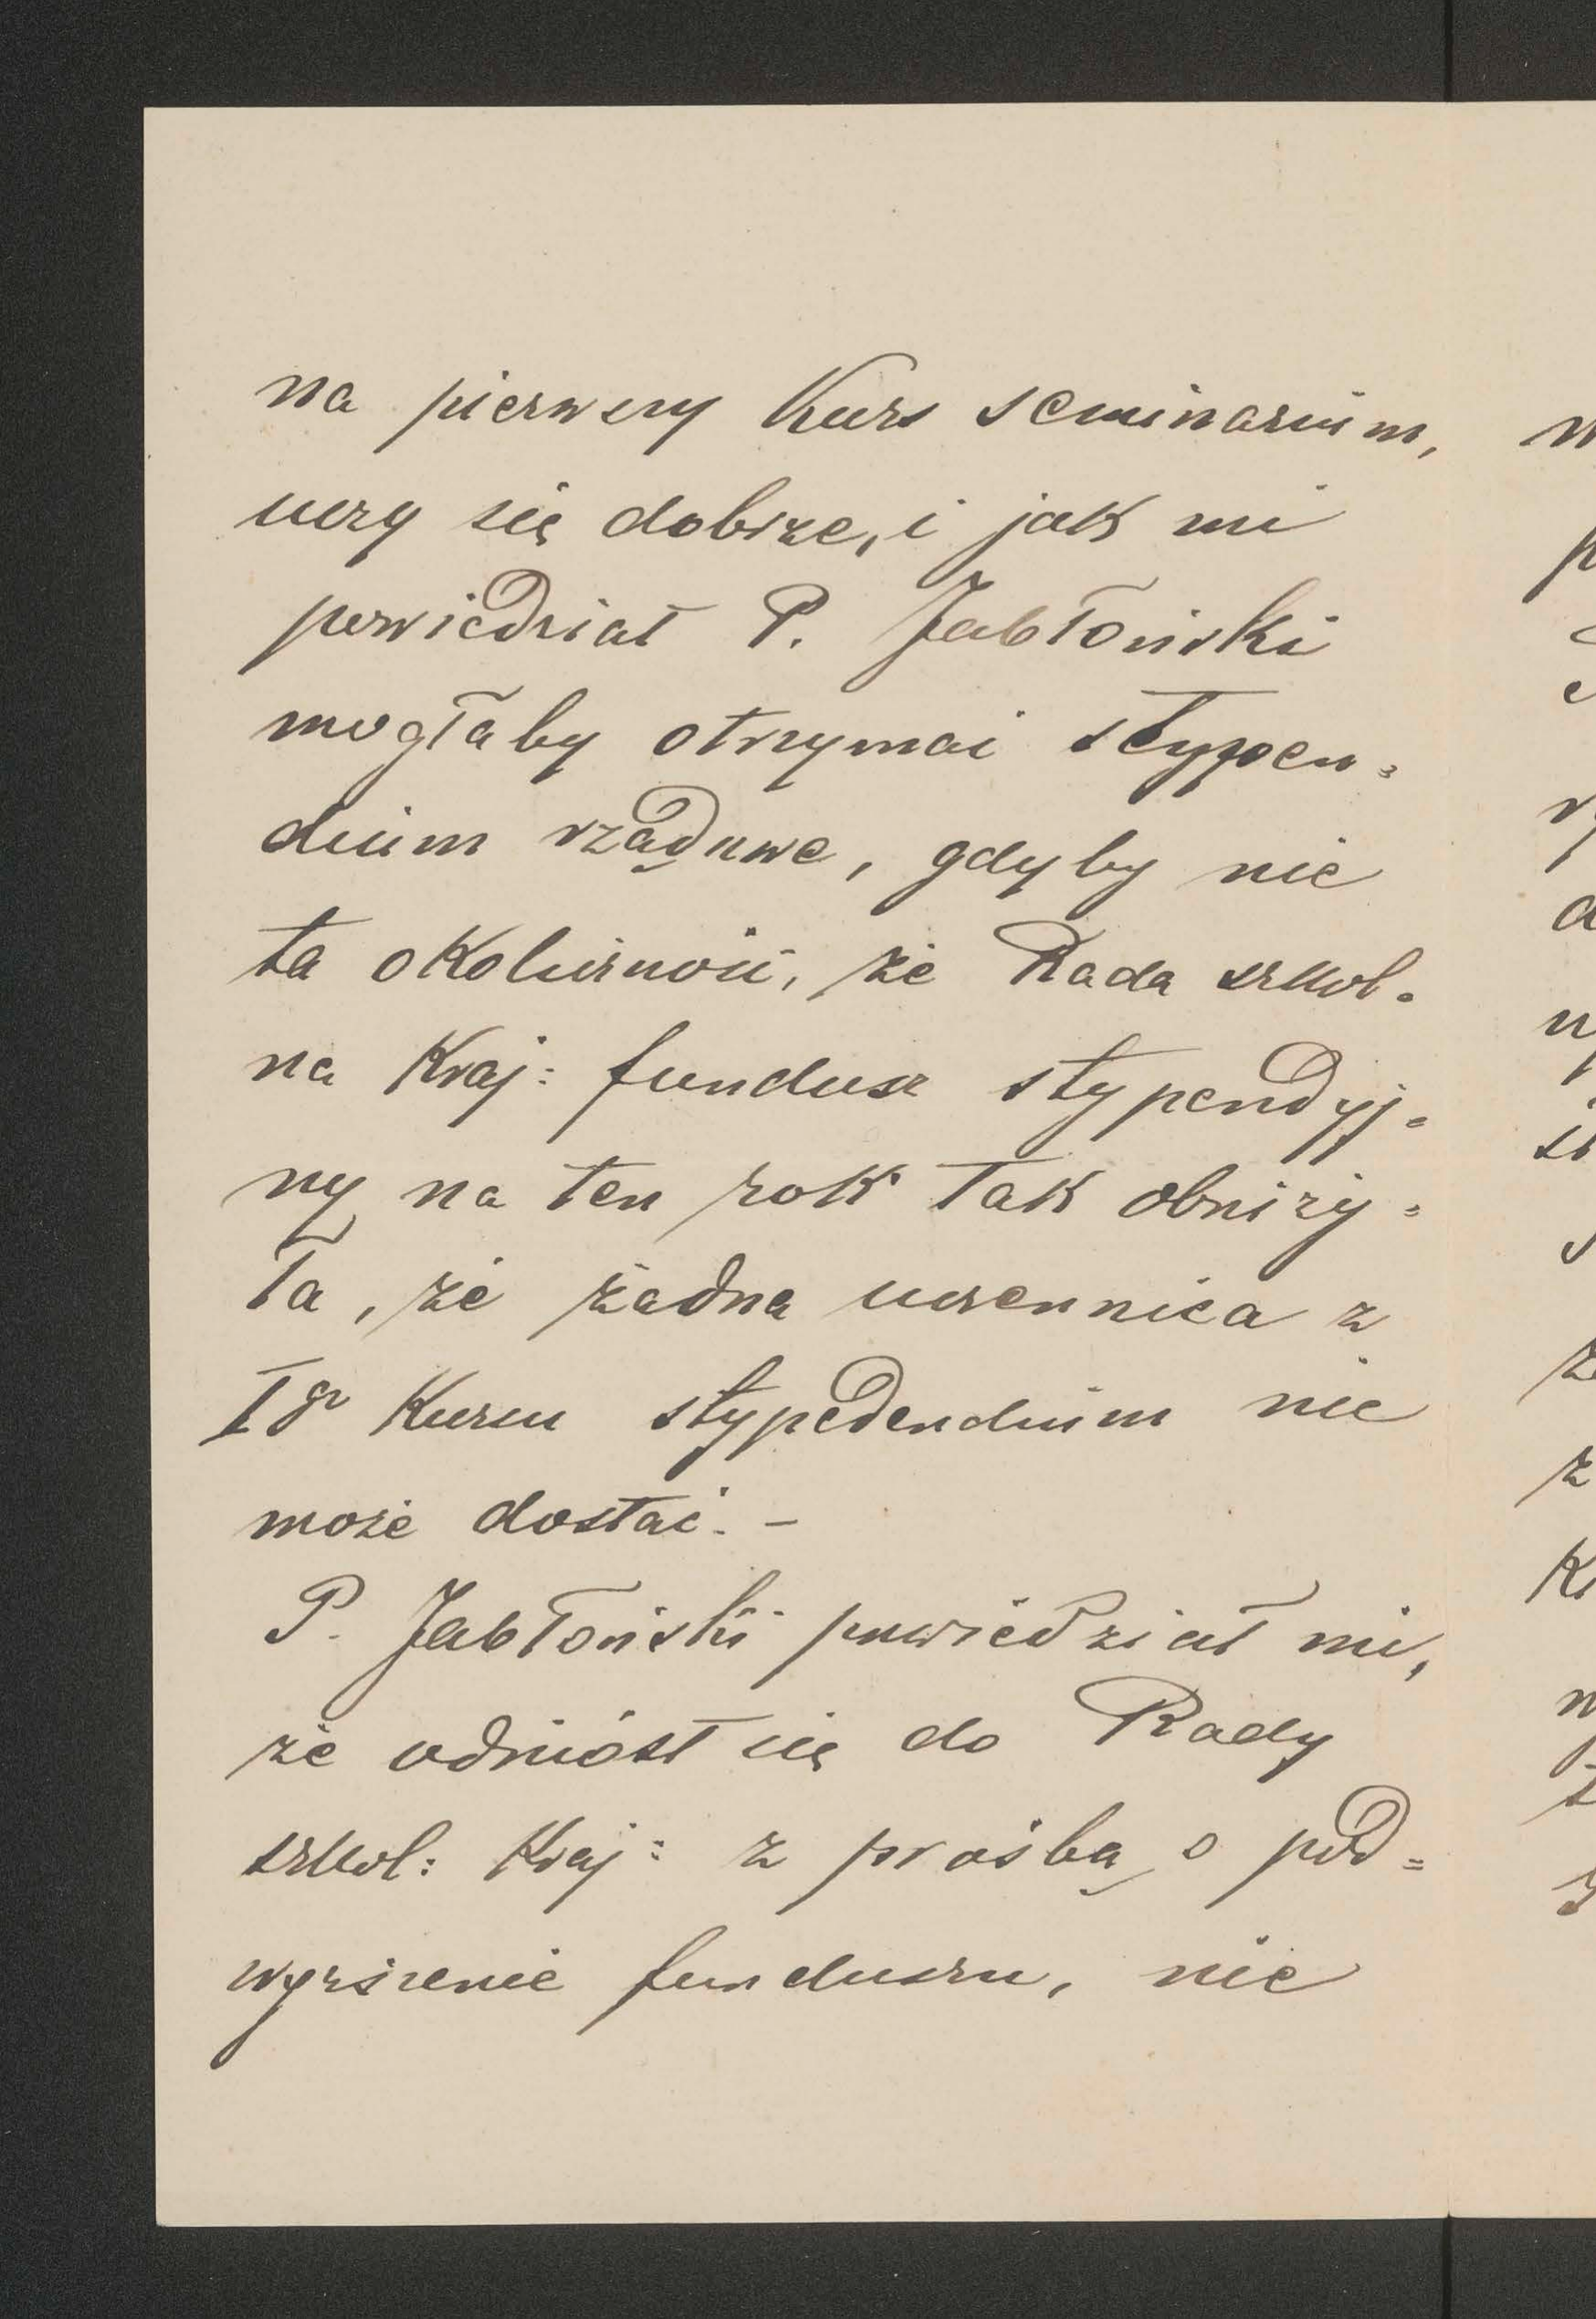 na pierwszy Kurs seminarium,
uczy się dobrze, i jak mi
powiedział P. Jabłoński
mogłaby otrzymać stypen=
dium rządowe, gdyby nie
ta okoliczność, że Rada szkol=
na Kraj: fundusz stypendyj=
ny na ten rok tak obniży=
ła, że żadna uczennica z
Igo Kursu stypedendium nie
może dostać. –
P. Jabłoński powiedział mi,
że odniósł się do Rady
szkol: Kraj: z prośbą o pod=
wyższenie funduszu, nie